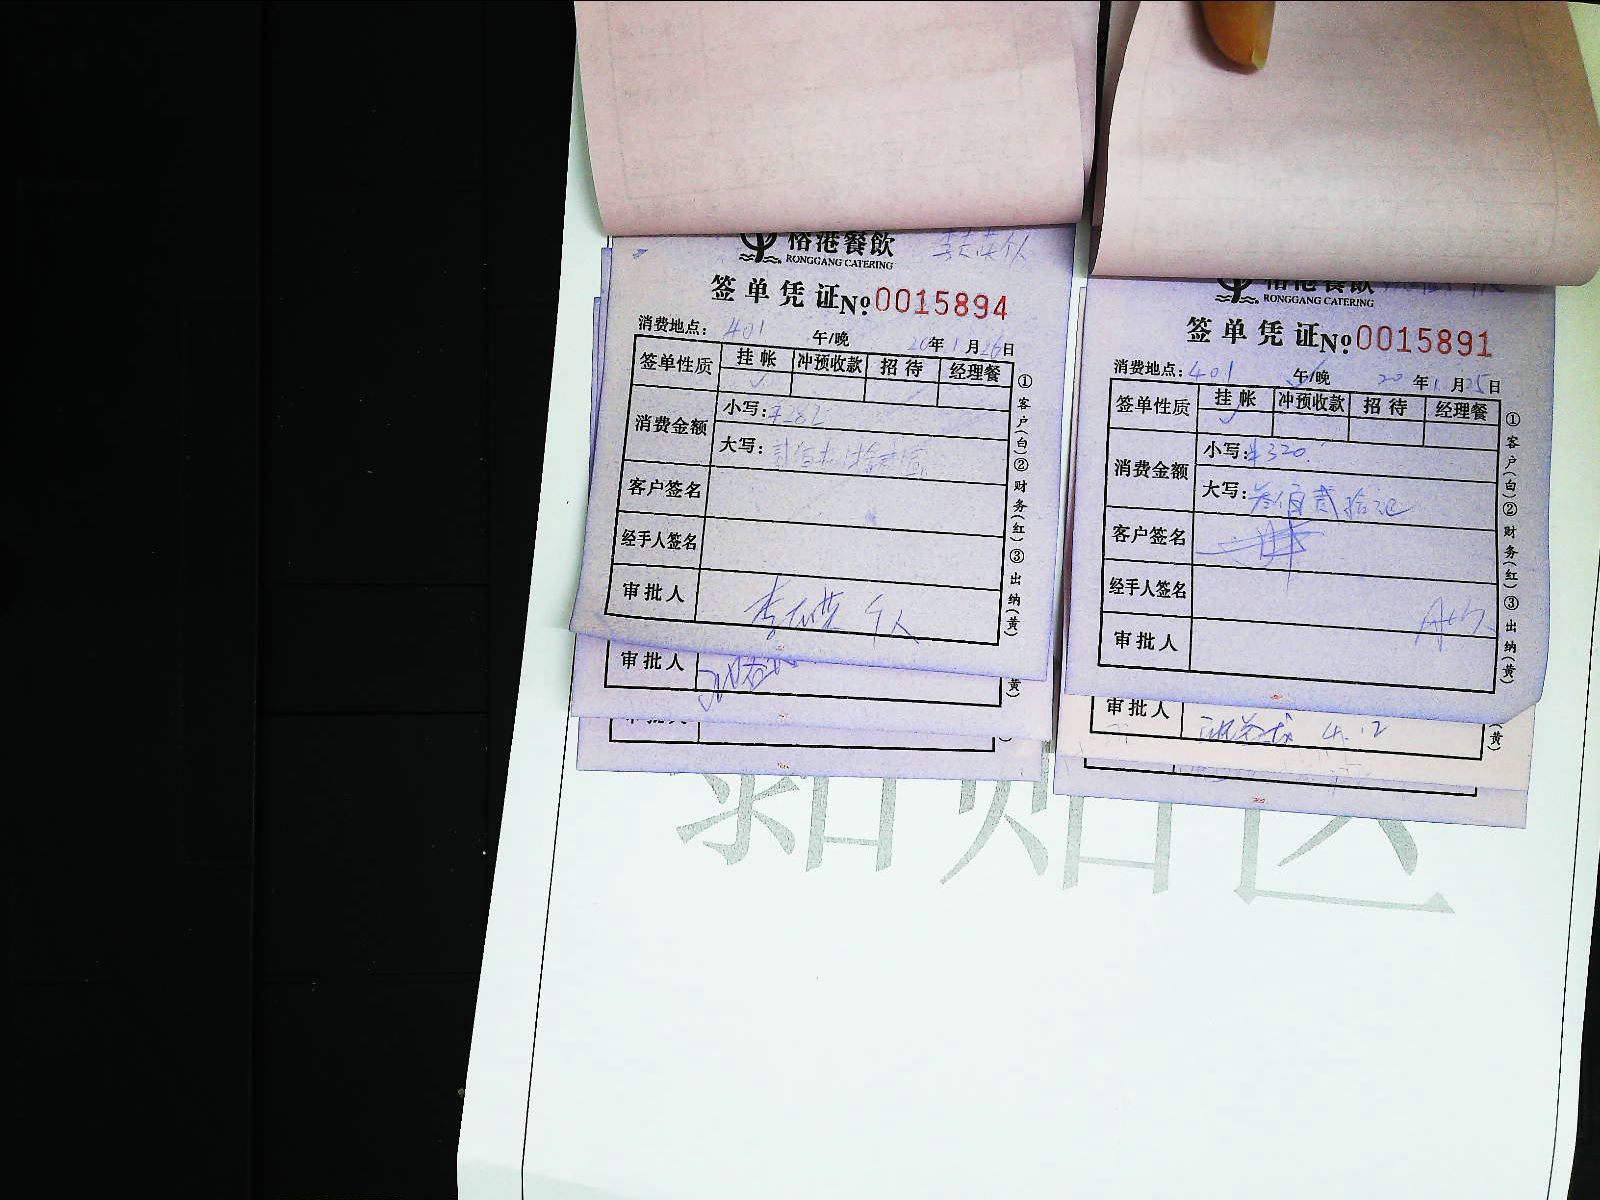 榕港餐飲
RONGGANG CATERING
签单凭证 No. 0015894
消费地点: 401 午/晚 20年1月26日
签单性质 挂帐 冲预收款 招待 经理餐
消费金额 小写: ¥282
大写:
客户签名
经手人签名
审批人 个人
①客户(白)②财务(红)③出纳(黄)
审批人
(黄)
审批人
榕港餐飲
RONGGANG CATERING
签单凭证 No. 0015891
消费地点: 401 午/晚 20年1月25日
签单性质 挂帐 冲预收款 招待 经理餐
消费金额 小写: ¥320
大写: 叁佰贰拾元
客户签名
经手人签名
审批人
①客户(白)②财务(红)③出纳(黄)
审批人
(黄)
粘贴区